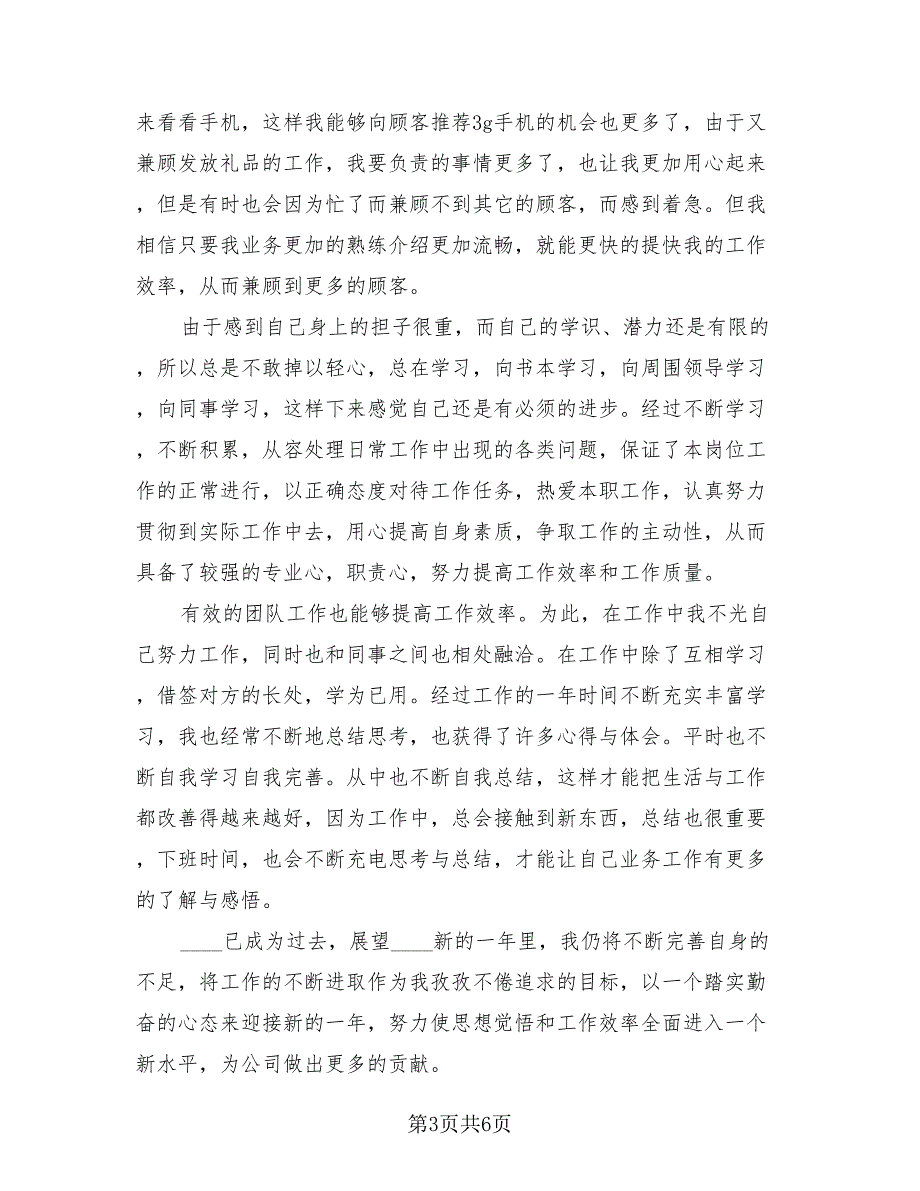 来看看手机，这样我能够向顾客推荐3g手机的机会也更多了，由于又
兼顾发放礼品的工作，我要负责的事情更多了，也让我更加用心起来
，但是有时也会因为忙了而兼顾不到其它的顾客，而感到着急。但我
相信只要我业务更加的熟练介绍更加流畅，就能更快的提快我的工作
效率，从而兼顾到更多的顾客。
由于感到自己身上的担子很重，而自己的学识、潜力还是有限的
，所以总是不敢掉以轻心，总在学习，向书本学习，向周围领导学习
，向同事学习，这样下来感觉自己还是有必须的进步。经过不断学习
，不断积累，从容处理日常工作中出现的各类问题，保证了本岗位工
作的正常进行，以正确态度对待工作任务，热爱本职工作，认真努力
贯彻到实际工作中去，用心提高自身素质，争取工作的主动性，从而
具备了较强的专业心，职责心，努力提高工作效率和工作质量。
有效的团队工作也能够提高工作效率。为此，在工作中我不光自
己努力工作，同时也和同事之间也相处融洽。在工作中除了互相学习
，借签对方的长处，学为已用。经过工作的一年时间不断充实丰富学
习，我也经常不断地总结思考，也获得了许多心得与体会。平时也不
断自我学习自我完善。从中也不断自我总结，这样才能把生活与工作
都改善得越来越好，因为工作中，总会接触到新东西，总结也很重要
，下班时间，也会不断充电思考与总结，才能让自己业务工作有更多
的了解与感悟。
____已成为过去，展望____新的一年里，我仍将不断完善自身的
不足，将工作的不断进取作为我孜孜不倦追求的目标，以一个踏实勤
奋的心态来迎接新的一年，努力使思想觉悟和工作效率全面进入一个
新水平，为公司做出更多的贡献。
第3页共6页